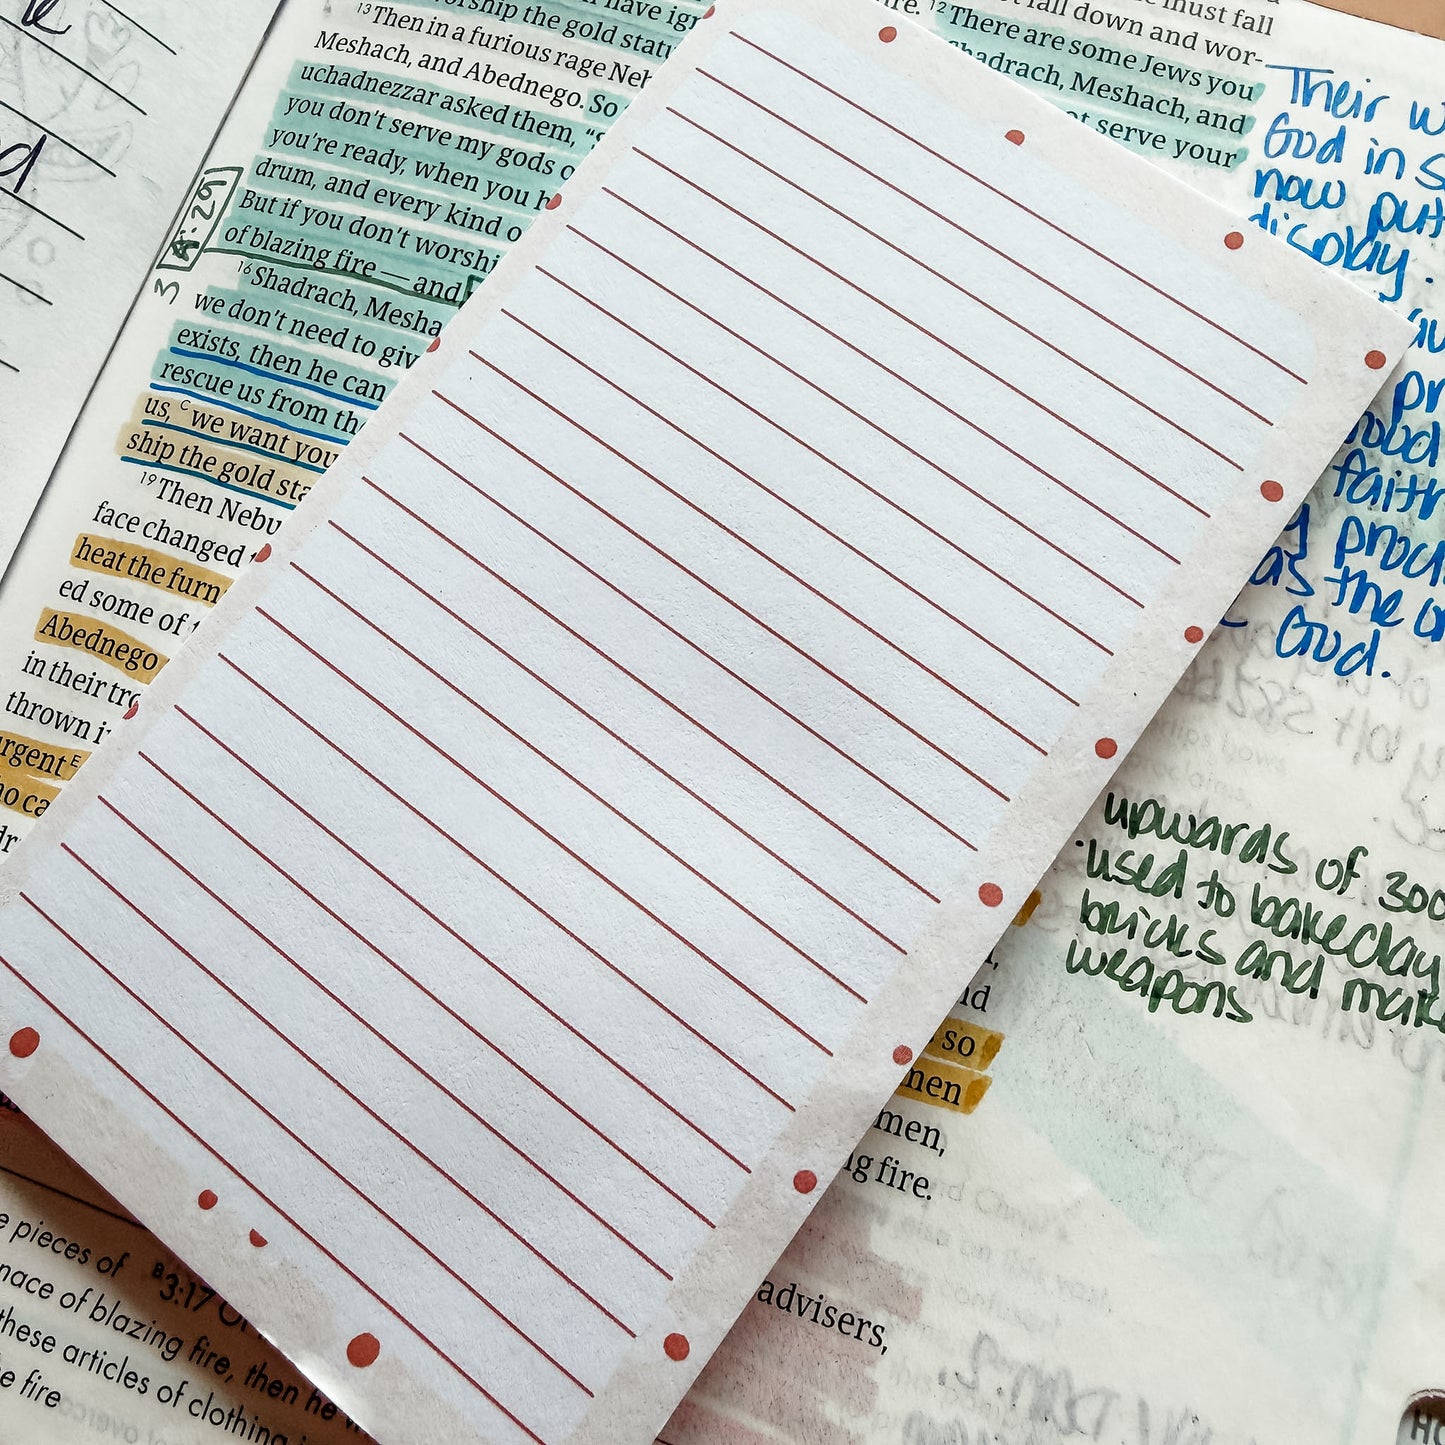 d
have ign
worship the gold statu
13 Then in a furious rage Neb
Meshach, and Abednego. So
uchadnezzar asked them, "
you don't serve my gods o
you're ready, when you h
drum, and every kind o
But if you don't worshi
of blazing fire — and
3 :29
16 Shadrach, Mesha
we don't need to giv
exists, then he can
rescue us from the
us, C we want you
ship the gold sta
19 Then Nebu
face changed
heat the furn
ed some of
Abednego
in their tro
thrown i
urgent E
ho ca
dr
e pieces of
nace of blazing fire, then he
these articles of clothing
e fire
B 3:17 Or
must fall
fall down and wor-
re. 12 There are some Jews you
Shadrach, Meshach, and
ot serve your
nd
so
men
men,
ng fire.
advisers,
Their w
God in s
now putt
display.
pr
faith
procl
as the on
God.
upwards of 300
used to bake clay
bricks and make
weapons
HO